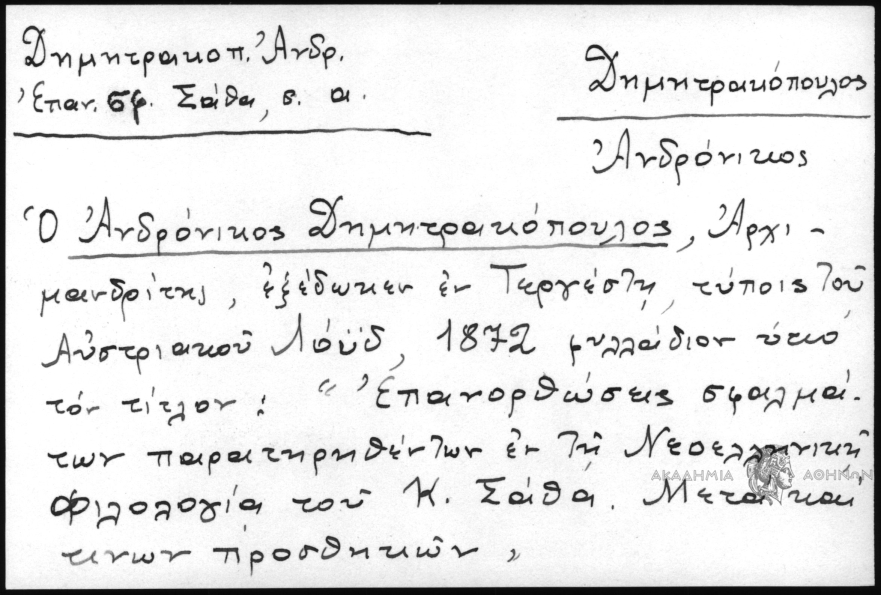 Δημητρακοπ. Ἀνδρ.
Ἐπαν. σφ. Σάθα, σ. α.
Δημητρακόπουλος
Ἀνδρόνικος
Ὁ Ἀνδρόνικος Δημητρακόπουλος, Ἀρχι-
μανδρίτης, ἐξέδωκεν ἐν Τεργέστῃ, τύποις τοῦ
Αὐστριακοῦ Λόϋδ, 1872 φυλλάδιον ὑπό
τόν τίτλον: “Ἐπανορθώσεις σφαλμά-
των παρατηρηθέντων ἐν τῇ Νεοελληνικῇ
Φιλολογίᾳ τοῦ Κ. Σάθα. Μετά καί
τινων προσθηκῶν„
ΑΚΑΔΗΜΙΑ ΑΘΗΝΩΝ